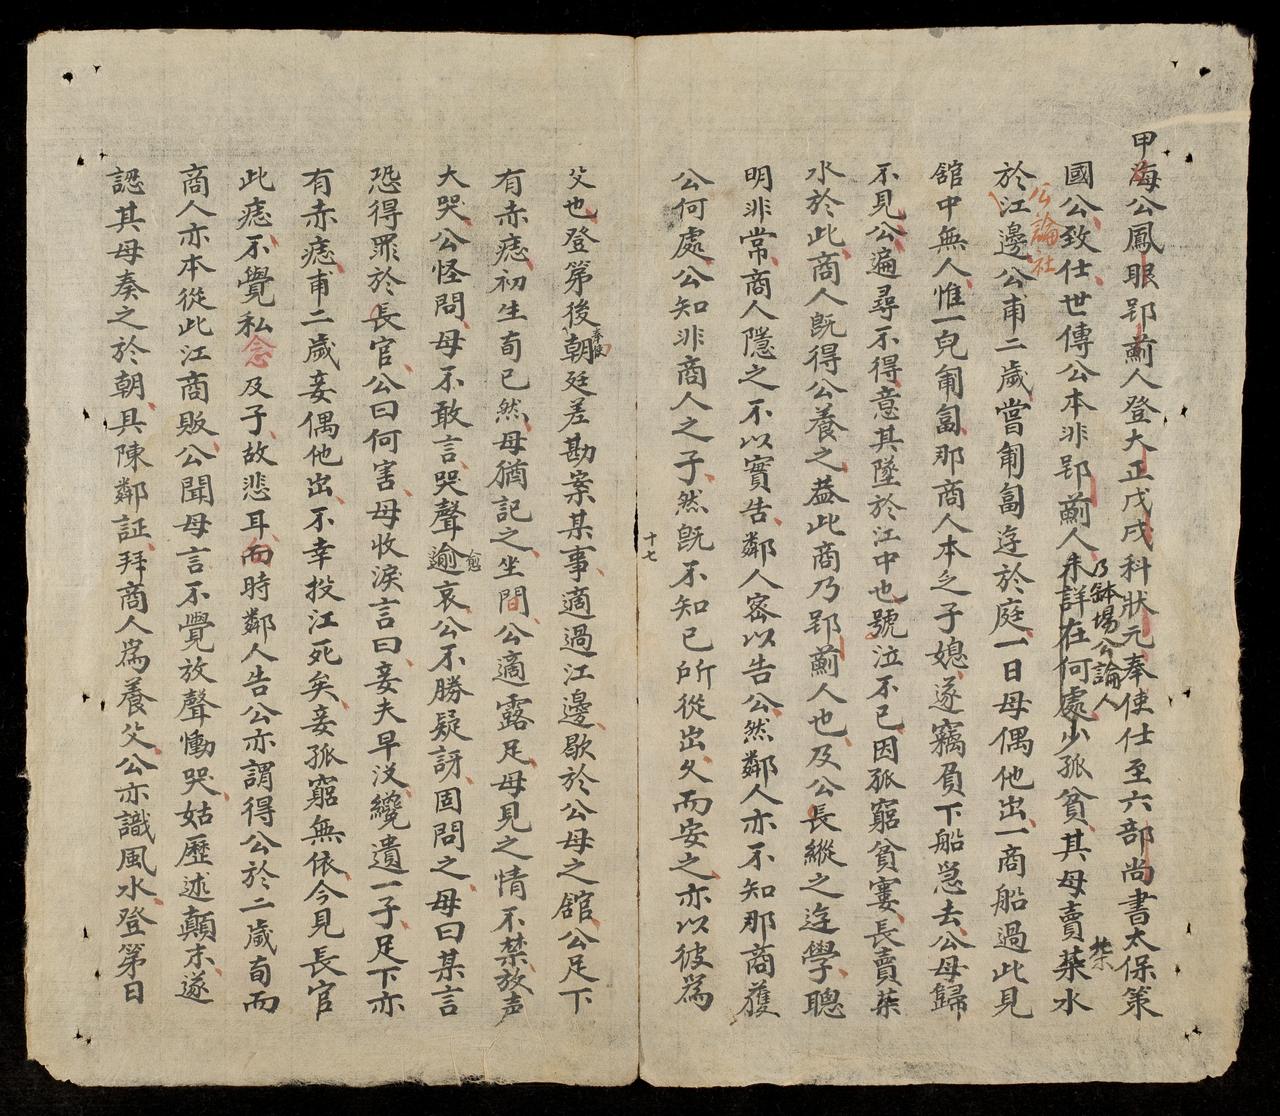 甲海公鳳眼郢薊人登大正戊戌科狀元奉使仕至六部尚書太保策
國公致仕世傳公本非郢薊人未詳在何處少孤貧其母賣菜水
乃鉢場公論人
公論社
於江邊公甫二歲嘗匍匐迬於庭一日母偶他出一商船過此見
舘中無人惟一兒匍匐那商人本乏子媳遂竊負下船急去公母歸
不見公遍尋不得意其墜於江中也號泣不已因孤窮貧窶長賣菜
水於此商人旣得公養之益此商乃郢薊人也及公長縱之迬學聰
明非常商人隱之不以實告鄰人密以告公然鄰人亦不知那商獲
公何處公知非商人之子然旣不知已所從出久而安之亦以彼爲
十七
父也登第後朝廷差勘案某事適過江邊歇於公母之舘公足下
奉使
有赤痣初生荀已然母猶記之坐間公適露足母見之情不禁放声
大哭公怪問母不敢言哭聲逾哀公不勝疑訝固問之母曰某言
愈
恐得罪於長官公曰何害母收淚言曰妾夫早没纔遺一子足下亦
有赤痣甫二歲妾偶他出不幸投江死矣妾孤窮無依今見長官
此痣不覺私念及子故悲耳而時鄰人告公亦謂得公於二歲荀而
商人亦本從此江商販公聞母言不覺放聲慟哭姑歷述顛末遂
認其母奏之於朝具陳鄰証拜商人爲養父公亦識風水登第日